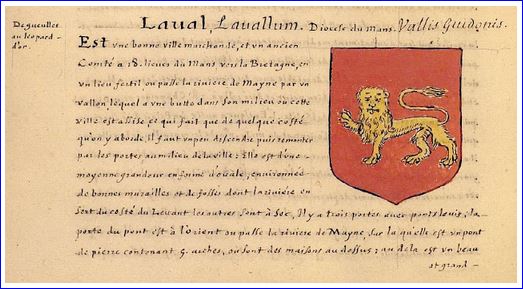 Laual, Lauallum. Diocese du Mans. Vallis Guidonis.
De gueulles
au leopard
d'or.
Est vne bonne ville marchande, et vn ancien
Comté a 18. lieues du Mans vers la Bretagne, en
vn lieu fertil, ou passe la riuiere de Mayne par vn
vallon, lequel a vne butte dans son milieu ou cette
ville est assise ce qui fait que de quelque costé
qu'on y aborde Il faut vn peu descendre puis remonter
par les portes au milieu de la ville: Elle est d'vne
moyenne grandeur en forme d'ouale, enuironnée
de bonnes murailles et de fosses dont la riuiere en
sert du costé du Leuant les autres sont à sec, Il y a trois portes auec ponts leuis, la
porte du pont est à l'orient ou passe la riuiere de Mayne, sur laquelle est vn pont
de pierre contenant 9. arches, ou sont des maisons au dessus; au delà est vn beau
et grand